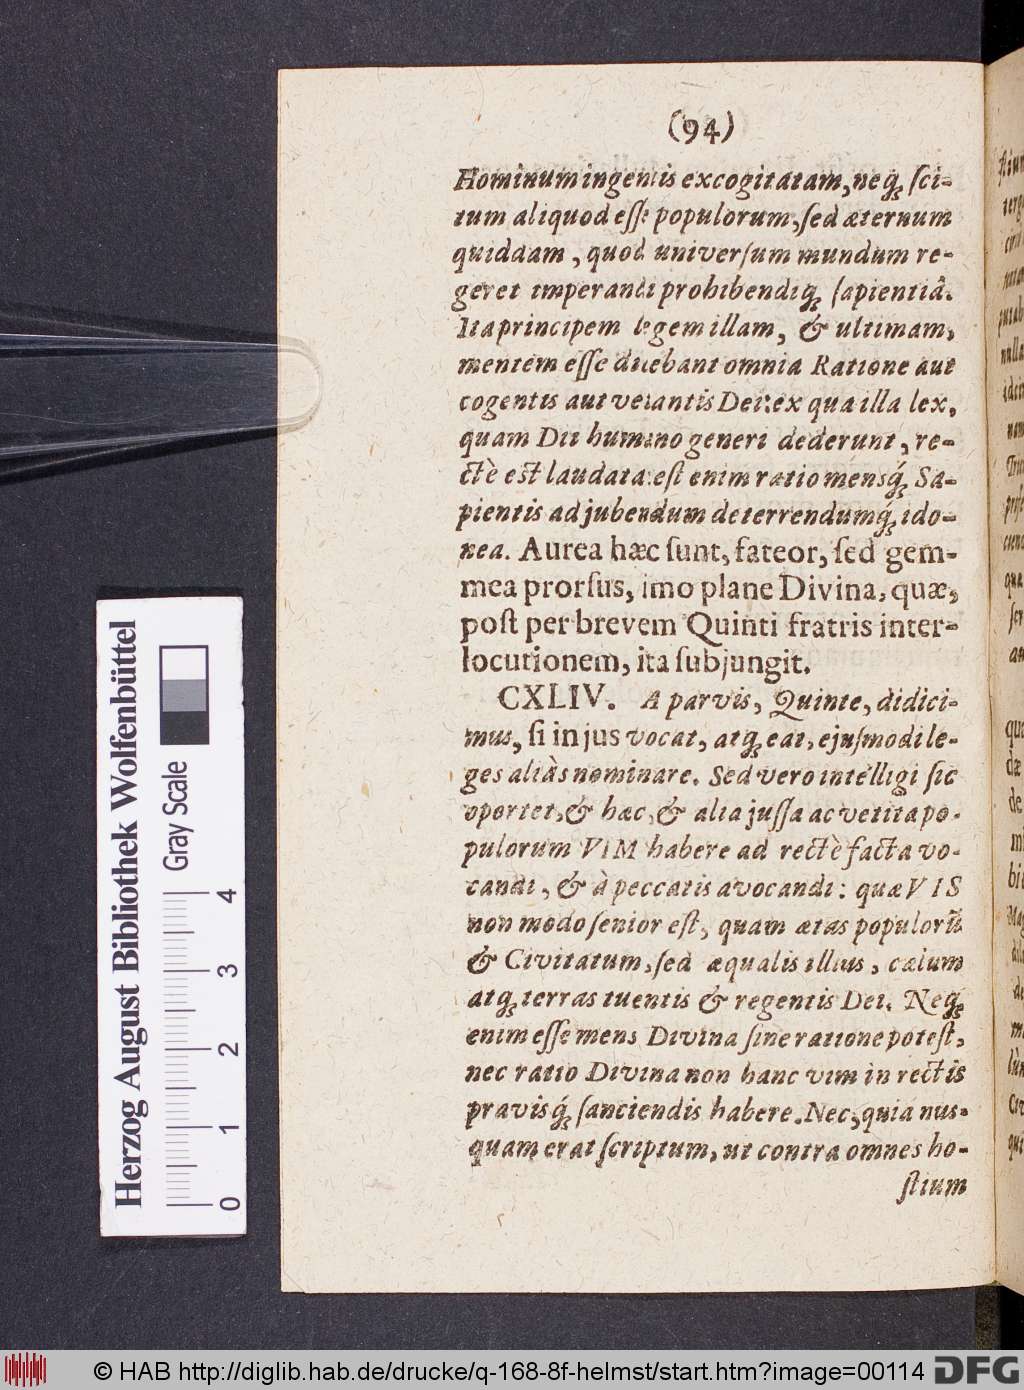 (94)
Hominum ingeniis excogitatam, neq́; ſci-
tum aliquod eſſe populorum, ſed æternum
quiddam, quod univerſum mundum re-
geret imperandi prohibendiq́; ſapientiâ.
Ita principem legem illam, & ultimam,
mentem eſſe dicebant omnia Ratione aut
cogentis aut vetantis Dei: ex qua illa lex,
quam Dii humano generi dederunt, re-
ctè est laudata: eſt enim ratio mensq́; Sa-
pientis ad jubendum deterrendumq́; ido-
nea. Aurea hæc ſunt, fateor, ſed gem-
mea prorſus, imo plane Divina, quæ,
poſt per brevem Quinti fratris inter-
locutionem, ita ſubjungit.
CXLIV. A parvis, Quinte, didici-
mus, ſi in jus vocat, atq; eat, ejuſmodi le-
ges aliàs nominare. Sed vero intelligi ſic
oportet, & hæc, & alia juſſa ac vetita po-
pulorum VIM habere ad rectè facta vo-
candi, & à peccatis avocandi: quæ VIS
non modo ſenior eſt, quam ætas populorũ
& Civitatum, ſed æqualis illius, cælum
atq; terras tuentis & regentis Dei. Neq́;
enim eſſe mens Divina ſine ratione poteſt,
nec ratio Divina non hanc vim in rectis
pravisq́; ſanciendis habere. Nec, quia nus-
quam erat ſcriptum, ut contra omnes ho-
ſtium
Herzog August Bibliothek Wolfenbüttel
Gray Scale
0 1 2 3 4
© HAB http://diglib.hab.de/drucke/q-168-8f-helmst/start.htm?image=00114
DFG